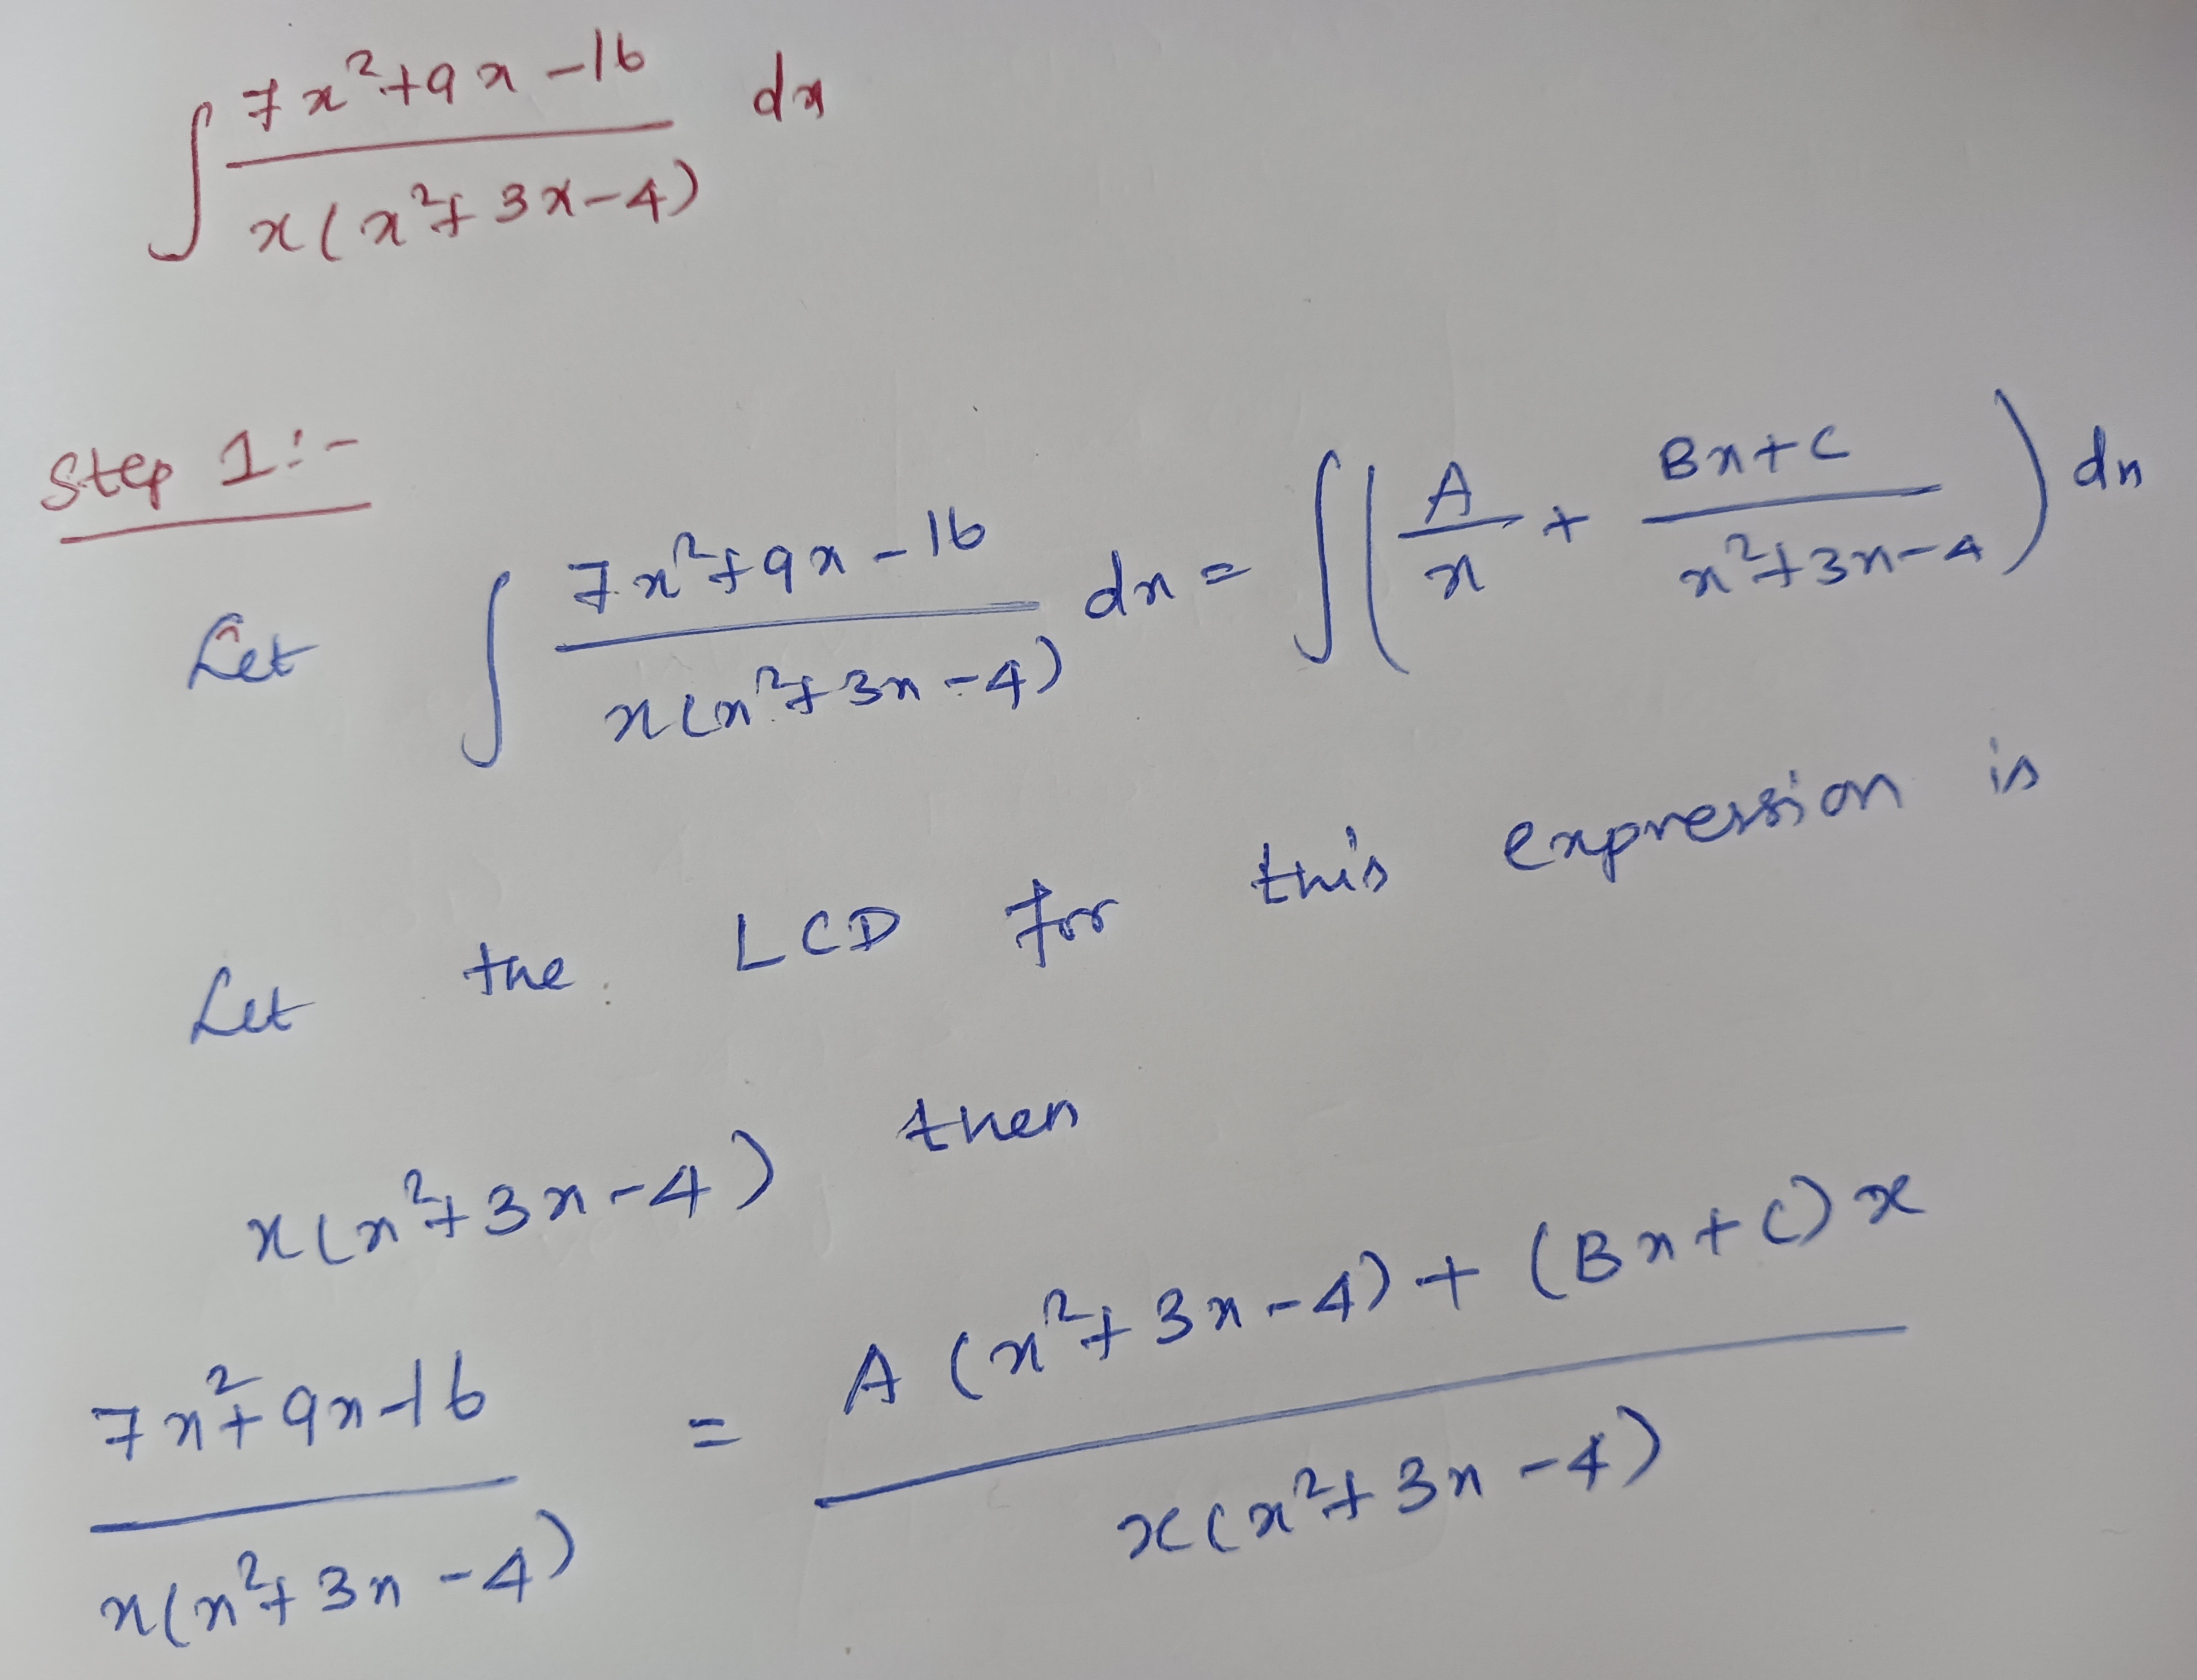 ∫ (7x²+9x-16)/(x(x²+3x-4)) dx
Step 1:-
Let ∫ (7x²+9x-16)/(x(x²+3x-4)) dx = ∫ (A/x + (Bx+C)/(x²+3x-4)) dx
Let the LCD for this expression is
x(x²+3x-4) then
(7x²+9x-16)/(x(x²+3x-4)) = (A(x²+3x-4)+(Bx+C)x)/(x(x²+3x-4))